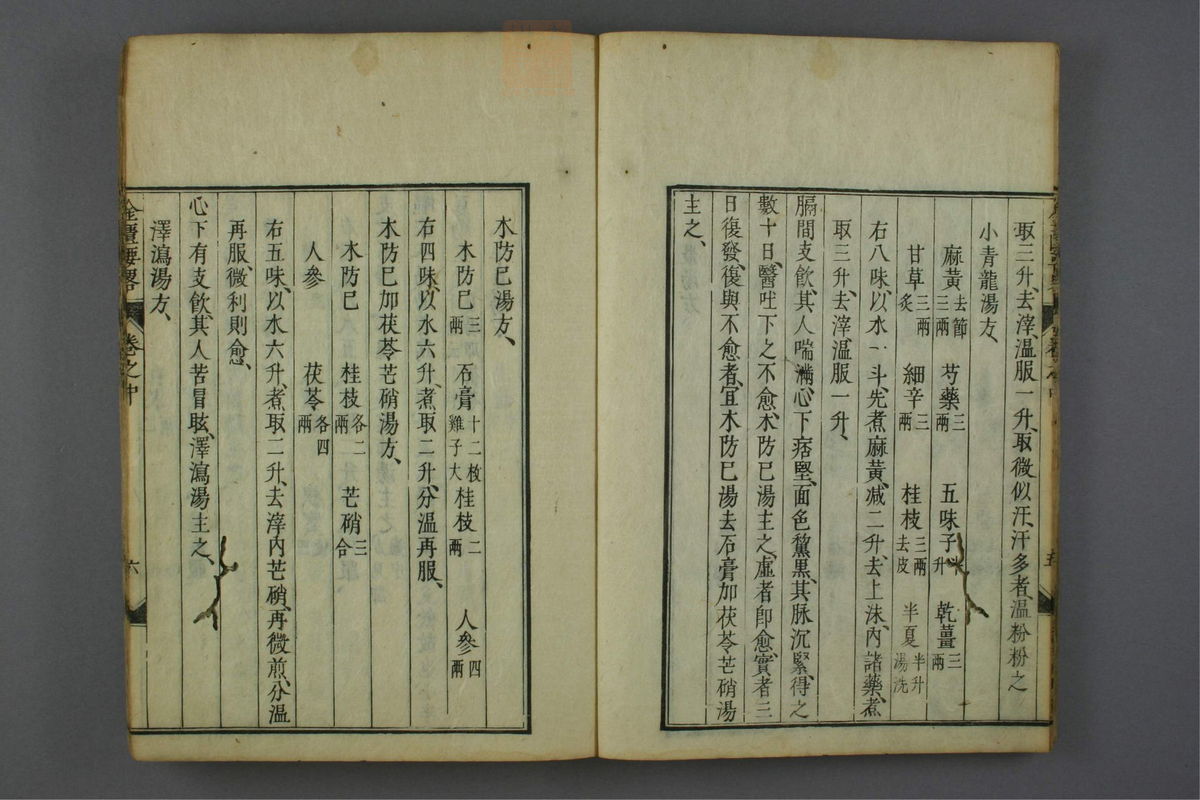 取三升、去滓、溫服一升、取微似汗、汗多者、溫粉粉之
小青龍湯方、
麻黃去節三兩 芍藥三兩 五味子半升 乾薑三兩
甘草三兩炙 細辛三兩 桂枝三兩去皮 半夏半升湯洗
右八味、以水一斗、先煮麻黃、減二升、去上沫、內諸藥、煮
取三升、去滓、溫服一升、
膈間支飲、其人喘滿、心下痞堅、面色黧黑、其脈沉緊、得之
數十日、醫吐下之不愈、木防已湯主之、虛者即愈、實者三
日復發、復與不愈者、宜木防已湯去石膏加茯苓芒硝湯
主之、
木防已湯方、
木防已三兩 石膏十二枚雞子大 桂枝二兩 人參四兩
右四味、以水六升、煮取二升、分溫再服、
木防已加茯苓芒硝湯方、
木防已 桂枝各二兩 芒硝三合
人參 茯苓各四兩
右五味、以水六升、煮取二升、去滓、內芒硝、再微煎、分溫
再服、微利則愈、
心下有支飲、其人苦冒眩、澤瀉湯主之、
澤瀉湯方、
金匱要畧 卷之中 六